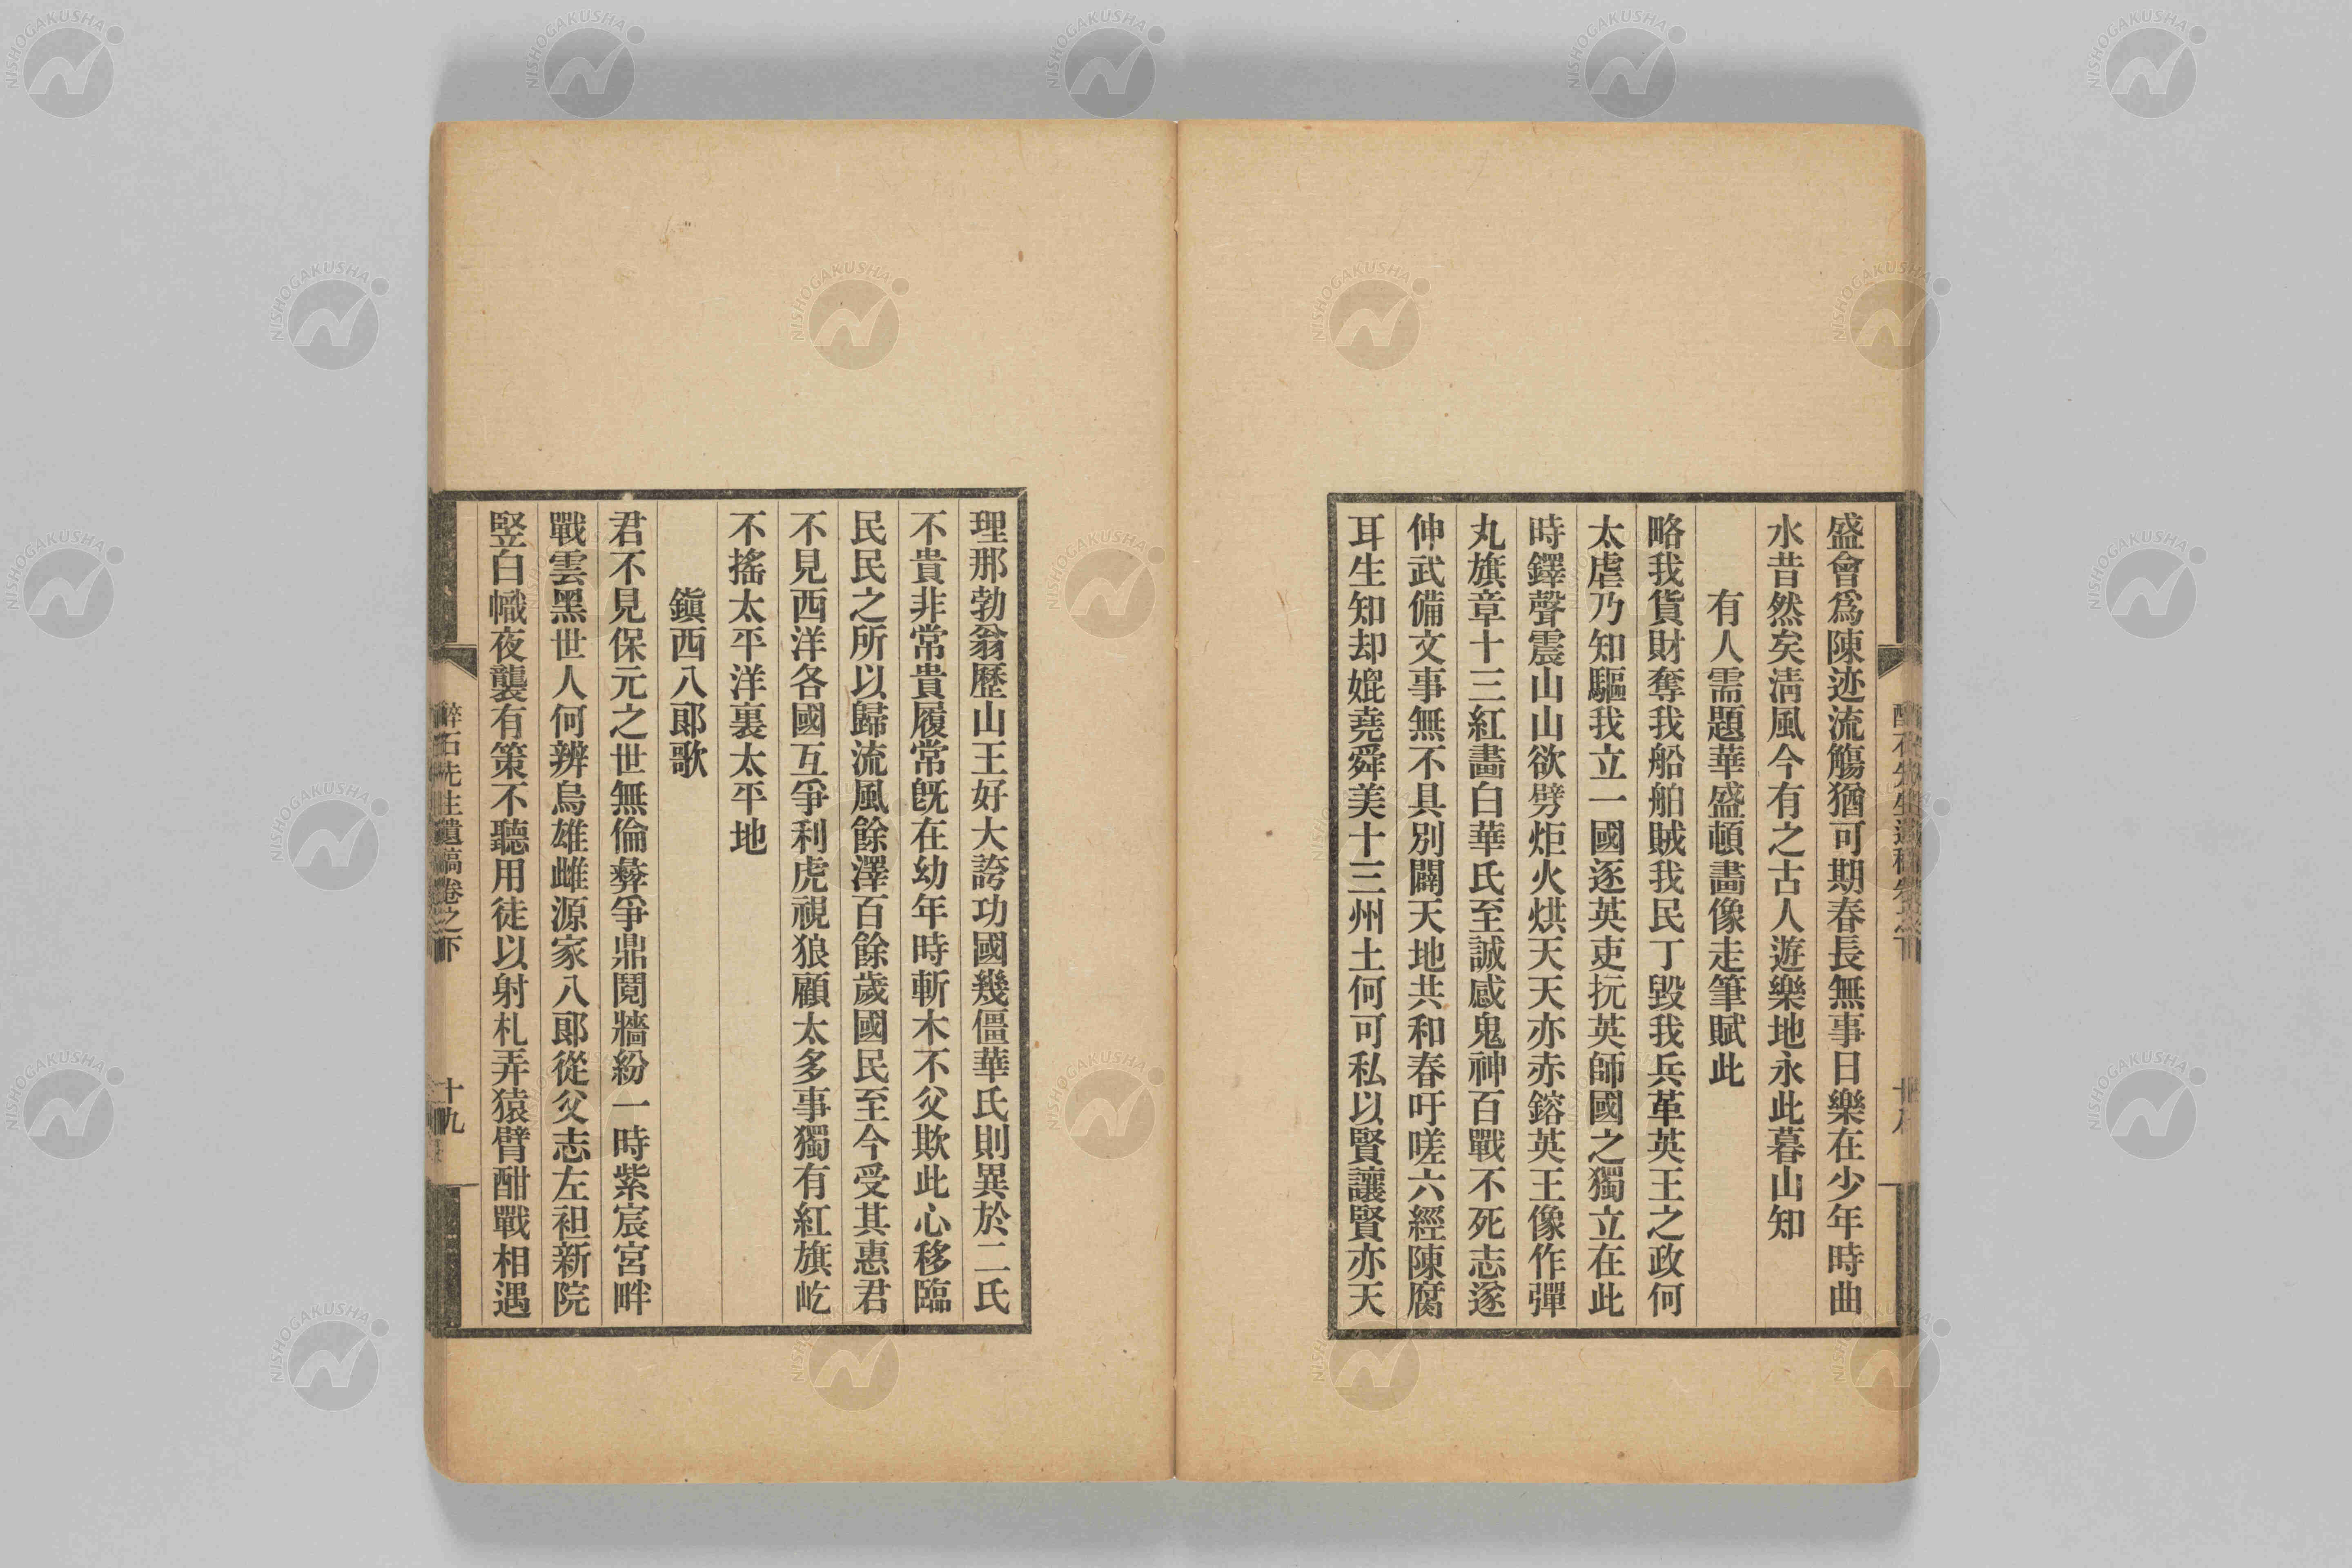 盛會爲陳迹流觴猶可期春長無事日樂在少年時曲
水昔然矣淸風今有之古人遊樂地永此暮山知
有人需題華盛頓畫像走筆賦此
略我貨財奪我船舶賊我民丁毀我兵革英王之政何
太虐乃知驅我立一國逐英吏抗英師國之獨立在此
時鐸聲震山山欲劈炬火烘天天亦赤鎔英王像作彈
丸旗章十三紅畵白華氏至誠感鬼神百戰不死志遂
伸武備文事無不具別闢天地共和春吁嗟六經陳腐
耳生知却媲堯舜美十三州土何可私以賢讓賢亦天
理那勃翁歷山王好大誇功國幾僵華氏則異於二氏
不貴非常貴履常旣在幼年時斬木不父欺此心移臨
民民之所以歸流風餘澤百餘歲國民至今受其惠君
不見西洋各國互爭利虎視狼顧太多事獨有紅旗屹
不搖太平洋裏太平地
鎭西八郎歌
君不見保元之世無倫彝爭鼎鬩牆紛一時紫宸宮畔
戰雲黑世人何辨烏雄雌源家八郎從父志左袒新院
竪白幟夜襲有策不聽用徒以射札弄猿臂酣戰相遇
醉石先生遺稿卷之下
十九
NISHOGAKUSHA